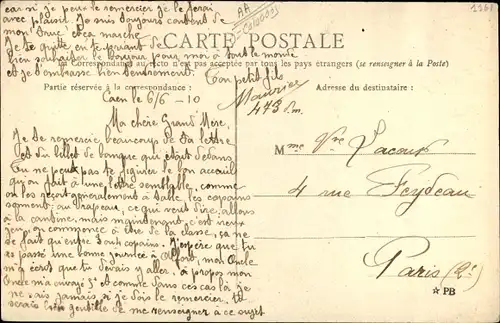 car si je peux le remercier je le ferai
avec plaisir. Je suis toujours content de
mon Duc et ca marche
Je te quitte en te priant de
bien souhaiter le bonjour pour moi à tout le monde
et je t'embrasse bien tendrement. Ton petit fils
Maurice
473 P.m.
CARTE POSTALE
La Correspondance au recto n'est pas acceptée par tous les pays étrangers (se renseigner à la Poste)
Partie réservée à la correspondance :
Adresse du destinataire :
Caen le 6/6 - 10
Ma chère Grand' Mère,
Je te remercie beaucoup de ta lettre
et du billet de banque qui était dedans
Tu ne peux pas te figurer le bon accueil
qu'on fait à une lettre semblable, comme
on les reçoit généralement à table, les copains
somment: au drapeau, ce qui veut dire: allons
à la cantine, mais maintenant c'est
on commence à être de la classe, ça ne
se fait qu'entre bons copains. J'espère que tu
as passé une bonne journée à Alfort, mon Oncle
m'écrit que tu devais y aller, à propos mon
Oncle m'a envoyé 5f et comme dans ces cas là je
ne sais jamais si je dois le remercier, tu
serais bien gentille de me renseigner à ce sujet
Mme Vve Lacour
4 rue Feydeau
Paris (2e)
☆ PB